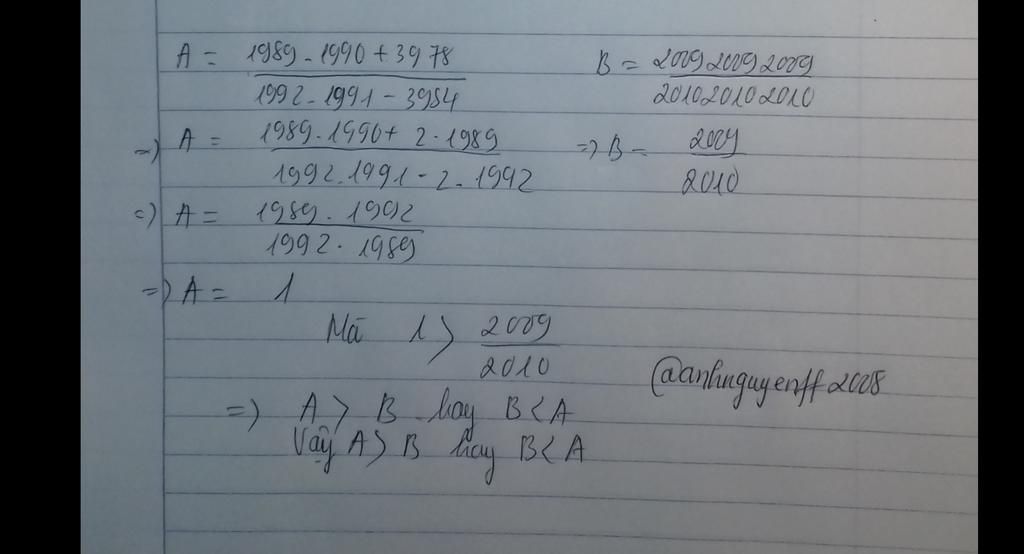 A = 1989 . 1990 + 3978 / 1992 . 1991 - 3984
B = 200920092009 / 201020102010
=> A = 1989 . 1990 + 2 . 1989 / 1992 . 1991 - 2 . 1992
=> B = 2009 / 2010
=> A = 1989 . 1992 / 1992 . 1989
=> A = 1
Mà 1 > 2009 / 2010
@anhnguyenff2008
=> A > B hay B < A
Vậy A > B hay B < A